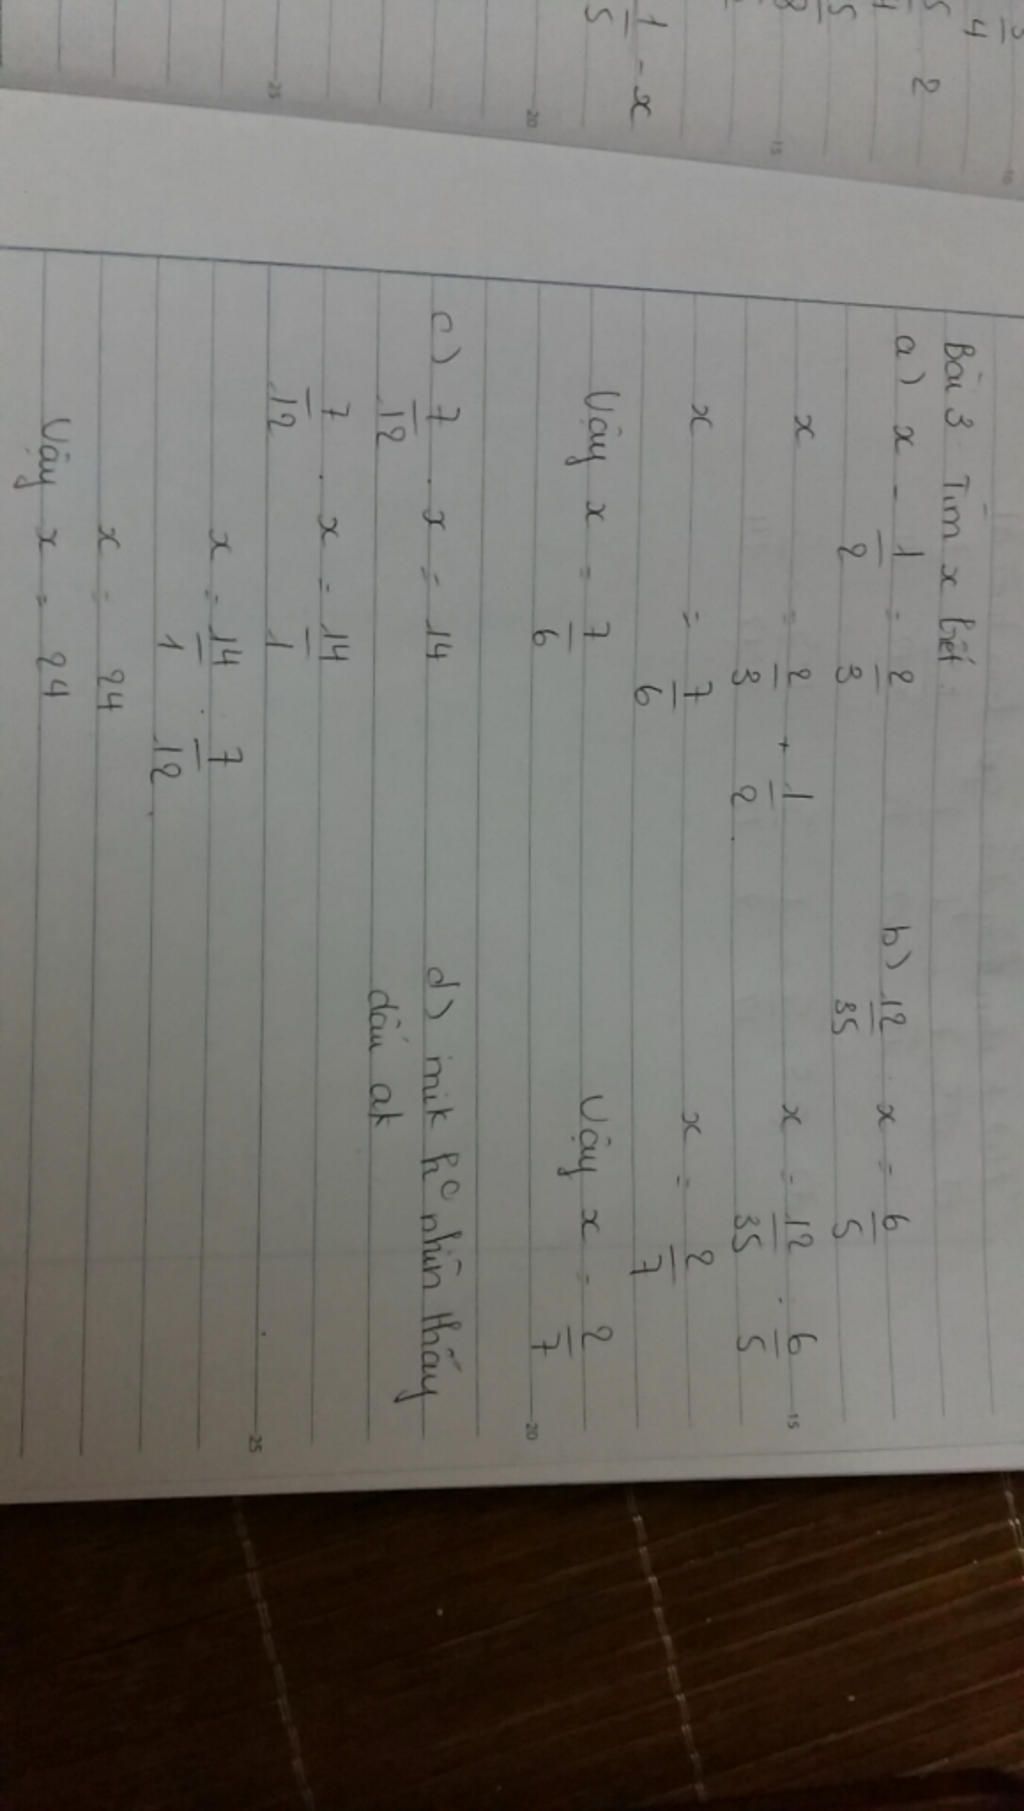 Bài 3 Tìm x biết:
a) x - 1/2 = 2/3
x = 2/3 + 1/2
x = 7/6
Vậy x = 7/6
b) 12/35 : x = 6/5
x = 12/35 : 6/5
x = 2/7
Vậy x = 2/7
c) 7/12 . x = 14
7/12 . x = 14/1
x = 14/1 : 7/12
x = 24
Vậy x = 24
d) mik ko nhìn thấy
dấu ak
1/5 - x
2
15
20
25
15
20
25